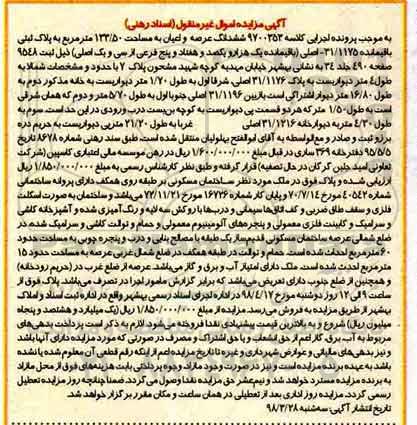 آگهی مزایده اموال غیر منقول (اسناد رهنی)
به موجب پرونده اجرایی کلاسه ۹۷۰۰۳۵۳ ششدانگ عرصه و اعیان به مساحت ۱۳۳/۵۰ متر مربع به پلاک ثبتی
باقیمانده ۳۱/۱۱۷۵- اصلی (باقیمانده یک هزار و یکصد و هفتاد و پنج فرعی از سی و یک اصلی) ذیل ثبت ۹۵۴۸
صفحه ۴۹۰ جلد ۳۴ به نشانی بهشهر خیابان میدیه کوچه شهید مشحون پلاک ۷ با حدود و مشخصات شمالا به
طول ۴ متر دیواریست به پلاک ۳۱/۱۱۷۶ اصلی، شرقا اول به طول ۱/۷۰ متر دیواریست به خانه مذکور دوم به
طول ۱۶/۸۰ متر دیوار اشتراکی است بازبین ۳۱/۱۱۹۶ اصلی جنوبا اول به طول ۵/۷۰ متر و دوم که همان شرقی
است به طول ۱/۵۰ متر که هر دو قسمت پی دیواریست به کوچه بن‌بست درب ورودی در این حد است، سوم به
طول ۴/۳۰ متر به دیوار خانه ۳۱/۱۲۱۶ اصلی غربا به طول ۲۱/۲۰ متر پی دیواریست به حریم دره
برزو ثبت و صادر و مع‌الواسطه به آقای ابوالفتح پهلولیان منتقل شده است. طبق سند رهنی شماره ۸۶۷۸ تاریخ
۹۵/۷/۵ دفترخانه ۳۶۹ ساری در قبال مبلغ ۱/۶۰۰/۰۰۰/۰۰۰ ریال در رهن موسسه مالی اعتباری کاسپین (شرکت
تعاونی امید جلین گرگان در حال تصفیه) قرار گرفته و طبق نظر کارشناس رسمی به مبلغ ۱/۸۵۰/۰۰۰/۰۰۰ ریال
ارزیابی شده و پلاک فوق در ملک مورد نظر ساختمان مسکونی بر طبقه روی همکف دارای پروانه ساختمانی
شماره ۴۰۵۴۲ مورخ ۷۰/۷/۱۴ و پایان کار شماره ۱۶۷۲۶ مورخ ۷۲/۱۱/۲۱ می باشد و ساختمان به صورت اسکلت
فلزی و سقف طاق ضربی و کف اتاقها سیمانی و دربها با روکش سه لایه و رنگ آمیزی شده و آشپزخانه کاشی
و سرامیک و کابینت فلزی معمولی و پنجره های آلومینیوم معمولی و حمام و توالت کاشی و سرامیک شده در
ضلع شمالی عرصه ساختمان مسکونی قدیم ساز یک طبقه با مصالح بنایی و درب و پنجره چوبی به مساحت حدود
۶۰ متر مربع احداث شده است. حمام و توالت در طبقه همکف در ضلع شمال غربی عرصه به مساحت حدود ۱۵
متر مربع احداث شده است. ملک دارای امتیاز آب و برق و گاز می باشد. عرصه از ضلع غرب در (حریم رودخانه)
و همچنین از ضلع جنوب دارای تعریض می باشد که برابر گزارش مامور اجرا در تصرف می باشد. پلاک فوق از
ساعت ۹ الی ۱۲ روز دوشنبه مورخ ۹۸/۴/۱۷ در اداره اجرای اسناد رسمی بهشهر واقع در اداره ثبت اسناد و املاک
بهشهر از طریق مزایده به فروش می رسد. مزایده از مبلغ ۱/۸۵۰/۰۰۰/۰۰۰ ریال (یک میلیارد و هشتصد و پنجاه
میلیون ریال) شروع و به بالاترین قیمت پیشنهادی نقدا فروخته می شود. لازم به ذکر است پرداخت بدهی های
مربوط به آب، برق، گاز اعم از حق انشعاب و یا حق اشتراک و مصرف در صورتی که مورد مزایده دارای آنها باشد
و نیز بدهی های مالیاتی و عوارض شهرداری و غیره تا تاریخ مزایده اعم از اینکه رقم قطعی آن معلوم شده یا نشده
باشد به عهده برنده مزایده است و نیز در صورت وجود مازاد وجوه پرداختی بابت هزینه های فوق از محل مازاد
به برنده مزایده مسترد خواهد شد و نیم عشر حق مزایده نقدا وصول می گردد. ضمنا چنانچه روز مزایده تعطیل
رسمی گردد، مزایده روز اداری بعد از تعطیلی در همان ساعت و مکان مقرر برگزار خواهد شد.
تاریخ انتشار آگهی: سه شنبه ۹۸/۳/۲۸